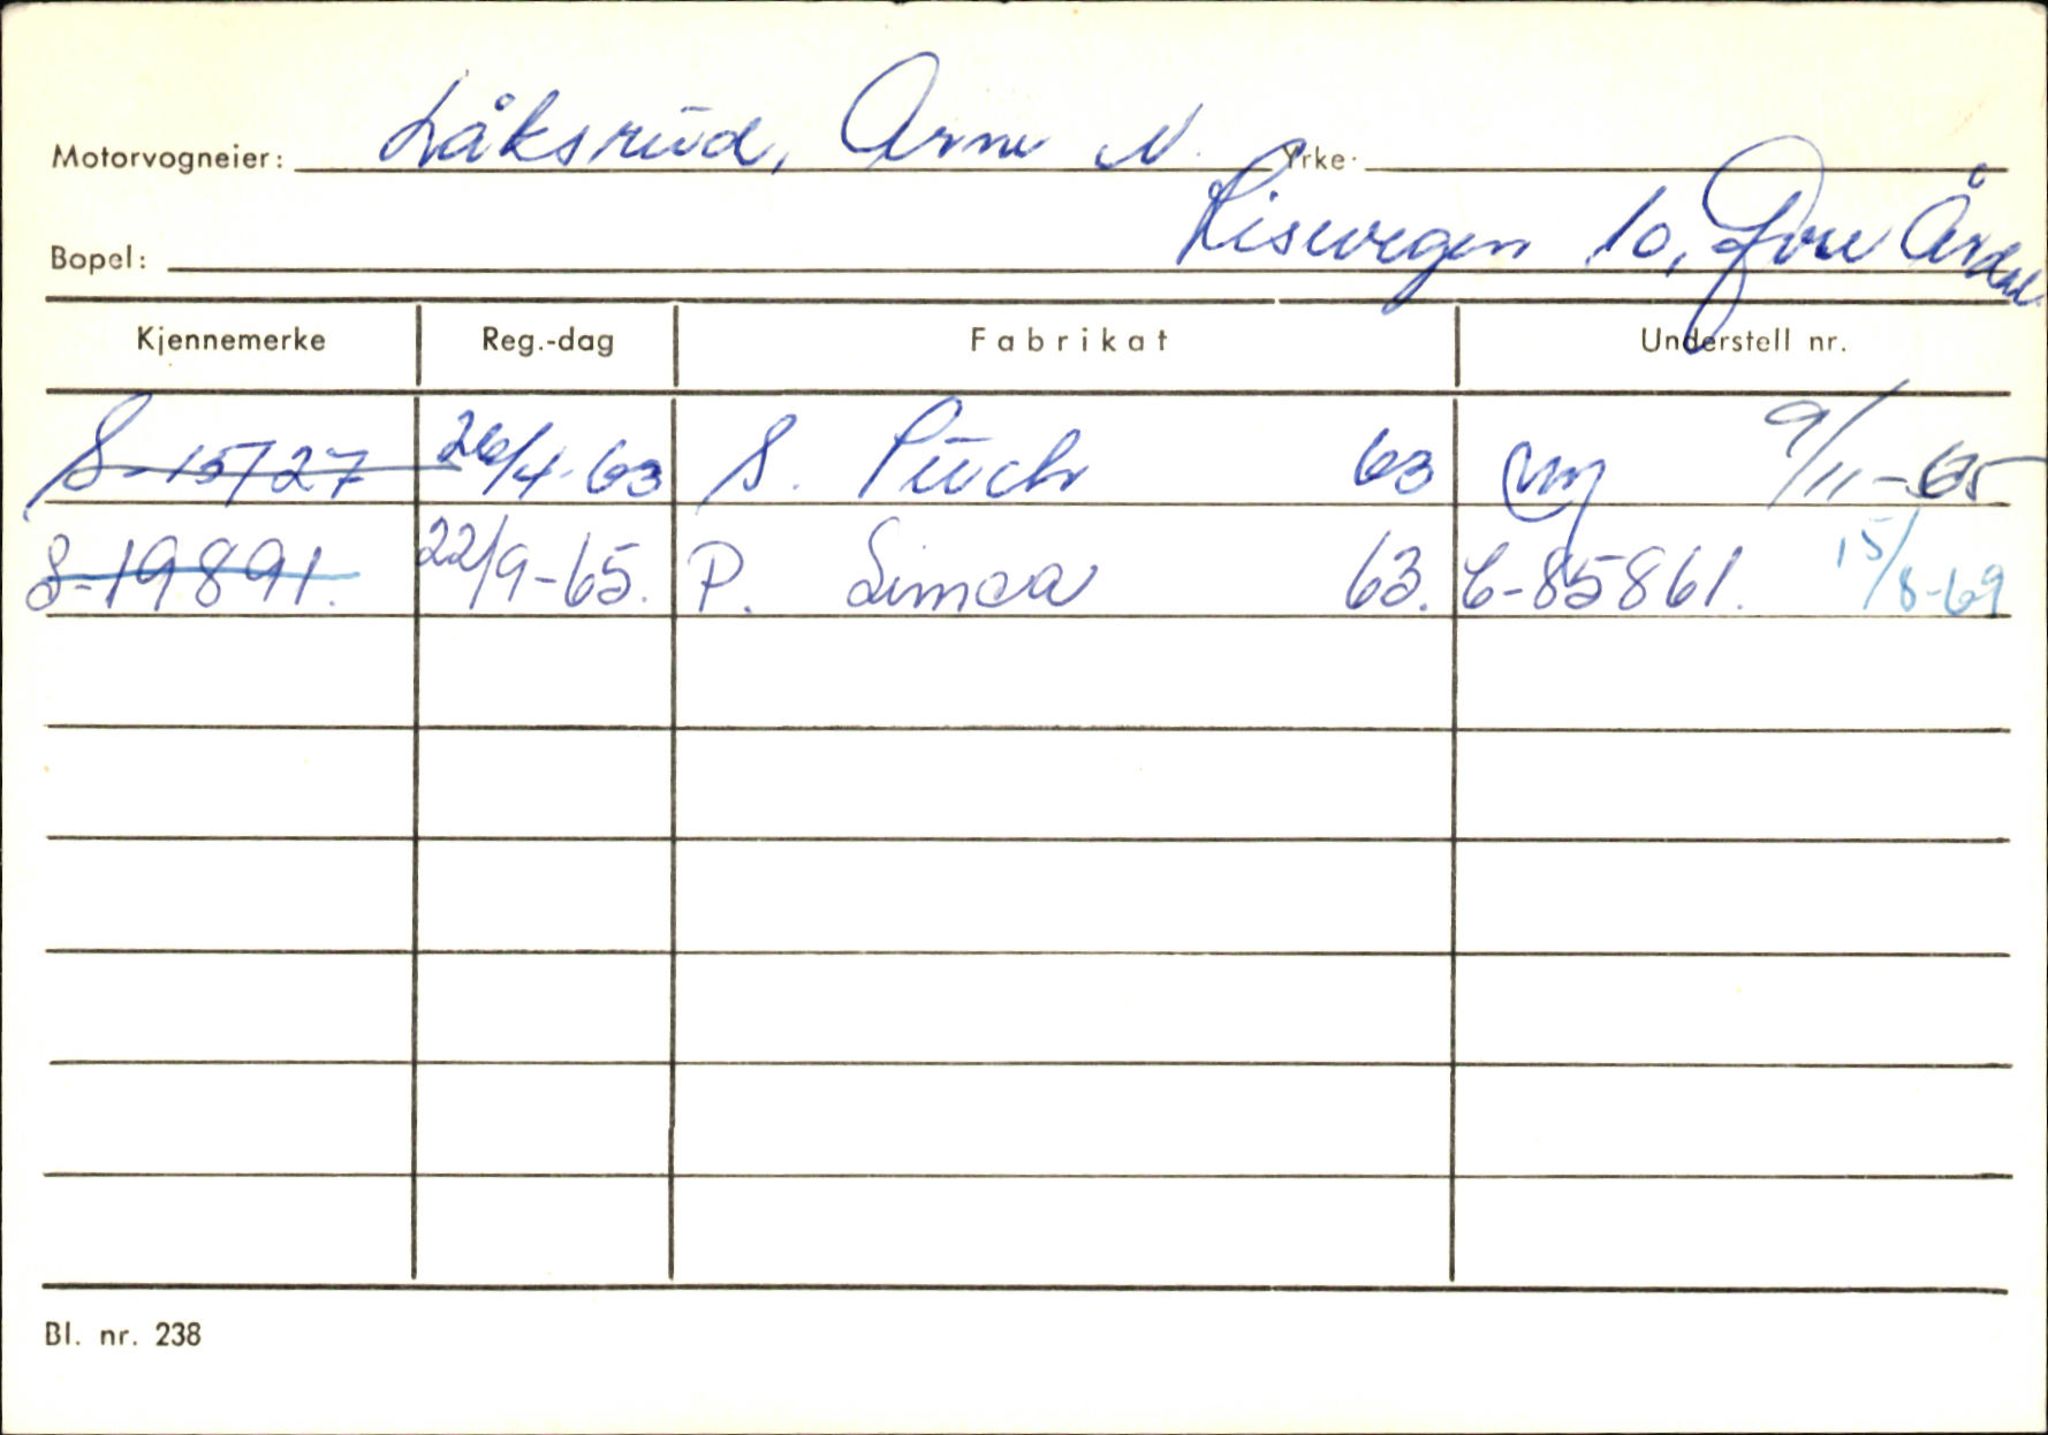 Motorvogneier: Låksrud, Arne N. Yrke:
Bopel: Lisevegen 10, Øvre Årdal
Kjennemerke Reg.-dag Fabrikat Understell nr.
S-15727 26/4-63 S. Puch 63 9/11-65
S-19891. 22/9-65. P. Simca 63. 6-85861. 15/8-69
Bl. nr. 238